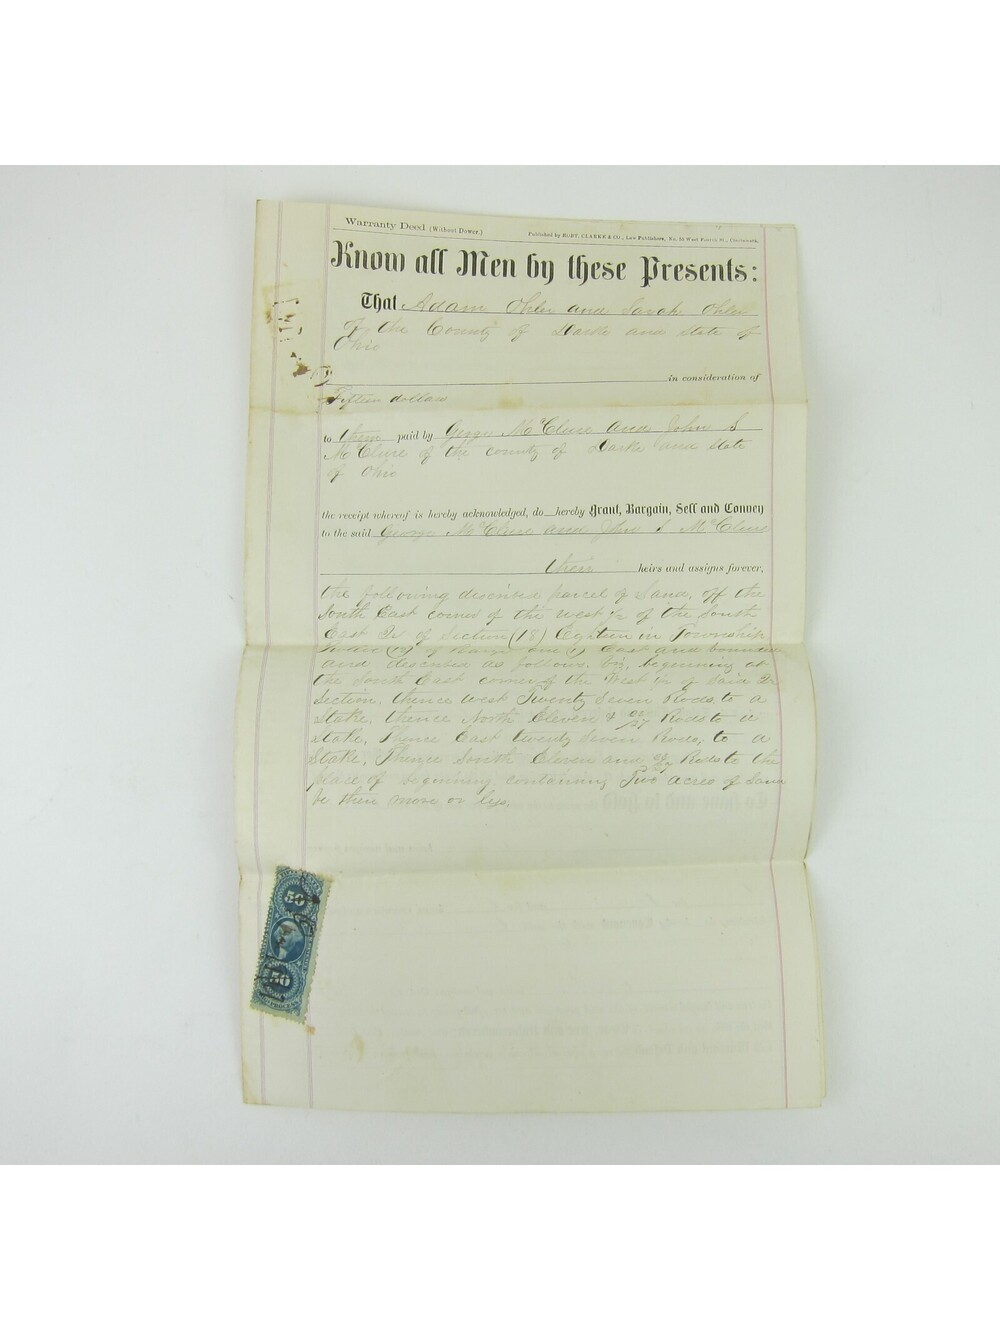 Warranty Deed (Without Dower.) Published by ROBT. CLARKE & CO., Law Publishers, No. 65 West Fourth St., Cincinnati.
Know all Men by these Presents:
That Adam Ohler and Sarah Ohler
of the County of Darke and State of
Ohio
in consideration of
Fifteen dollars
to them paid by George McClure and John S
McClure of the county of Darke and State
of Ohio
the receipt whereof is hereby acknowledged, do hereby Grant, Bargain, Sell and Convey
to the said George McClure and John S McClure
their heirs and assigns forever,
the following described parcel of Land, off the
South East corner of the west 1/2 of the South
East Qr of Section (18) Eighteen in Township
Twelve (12) of Range one (1) East and bounded
and described as follows. Viz, beginning at
the South East corner of the West 1/2 of Said Qr
Section. thence west Twenty Seven Rods, to a
Stake, thence North Eleven & Rods to a
Stake, Thence East twenty Seven Rods, to a
Stake, Thence South Eleven and Rods to the
place of beginning, containing Two acres of Land
be there more or less.
50
50
PROCESS